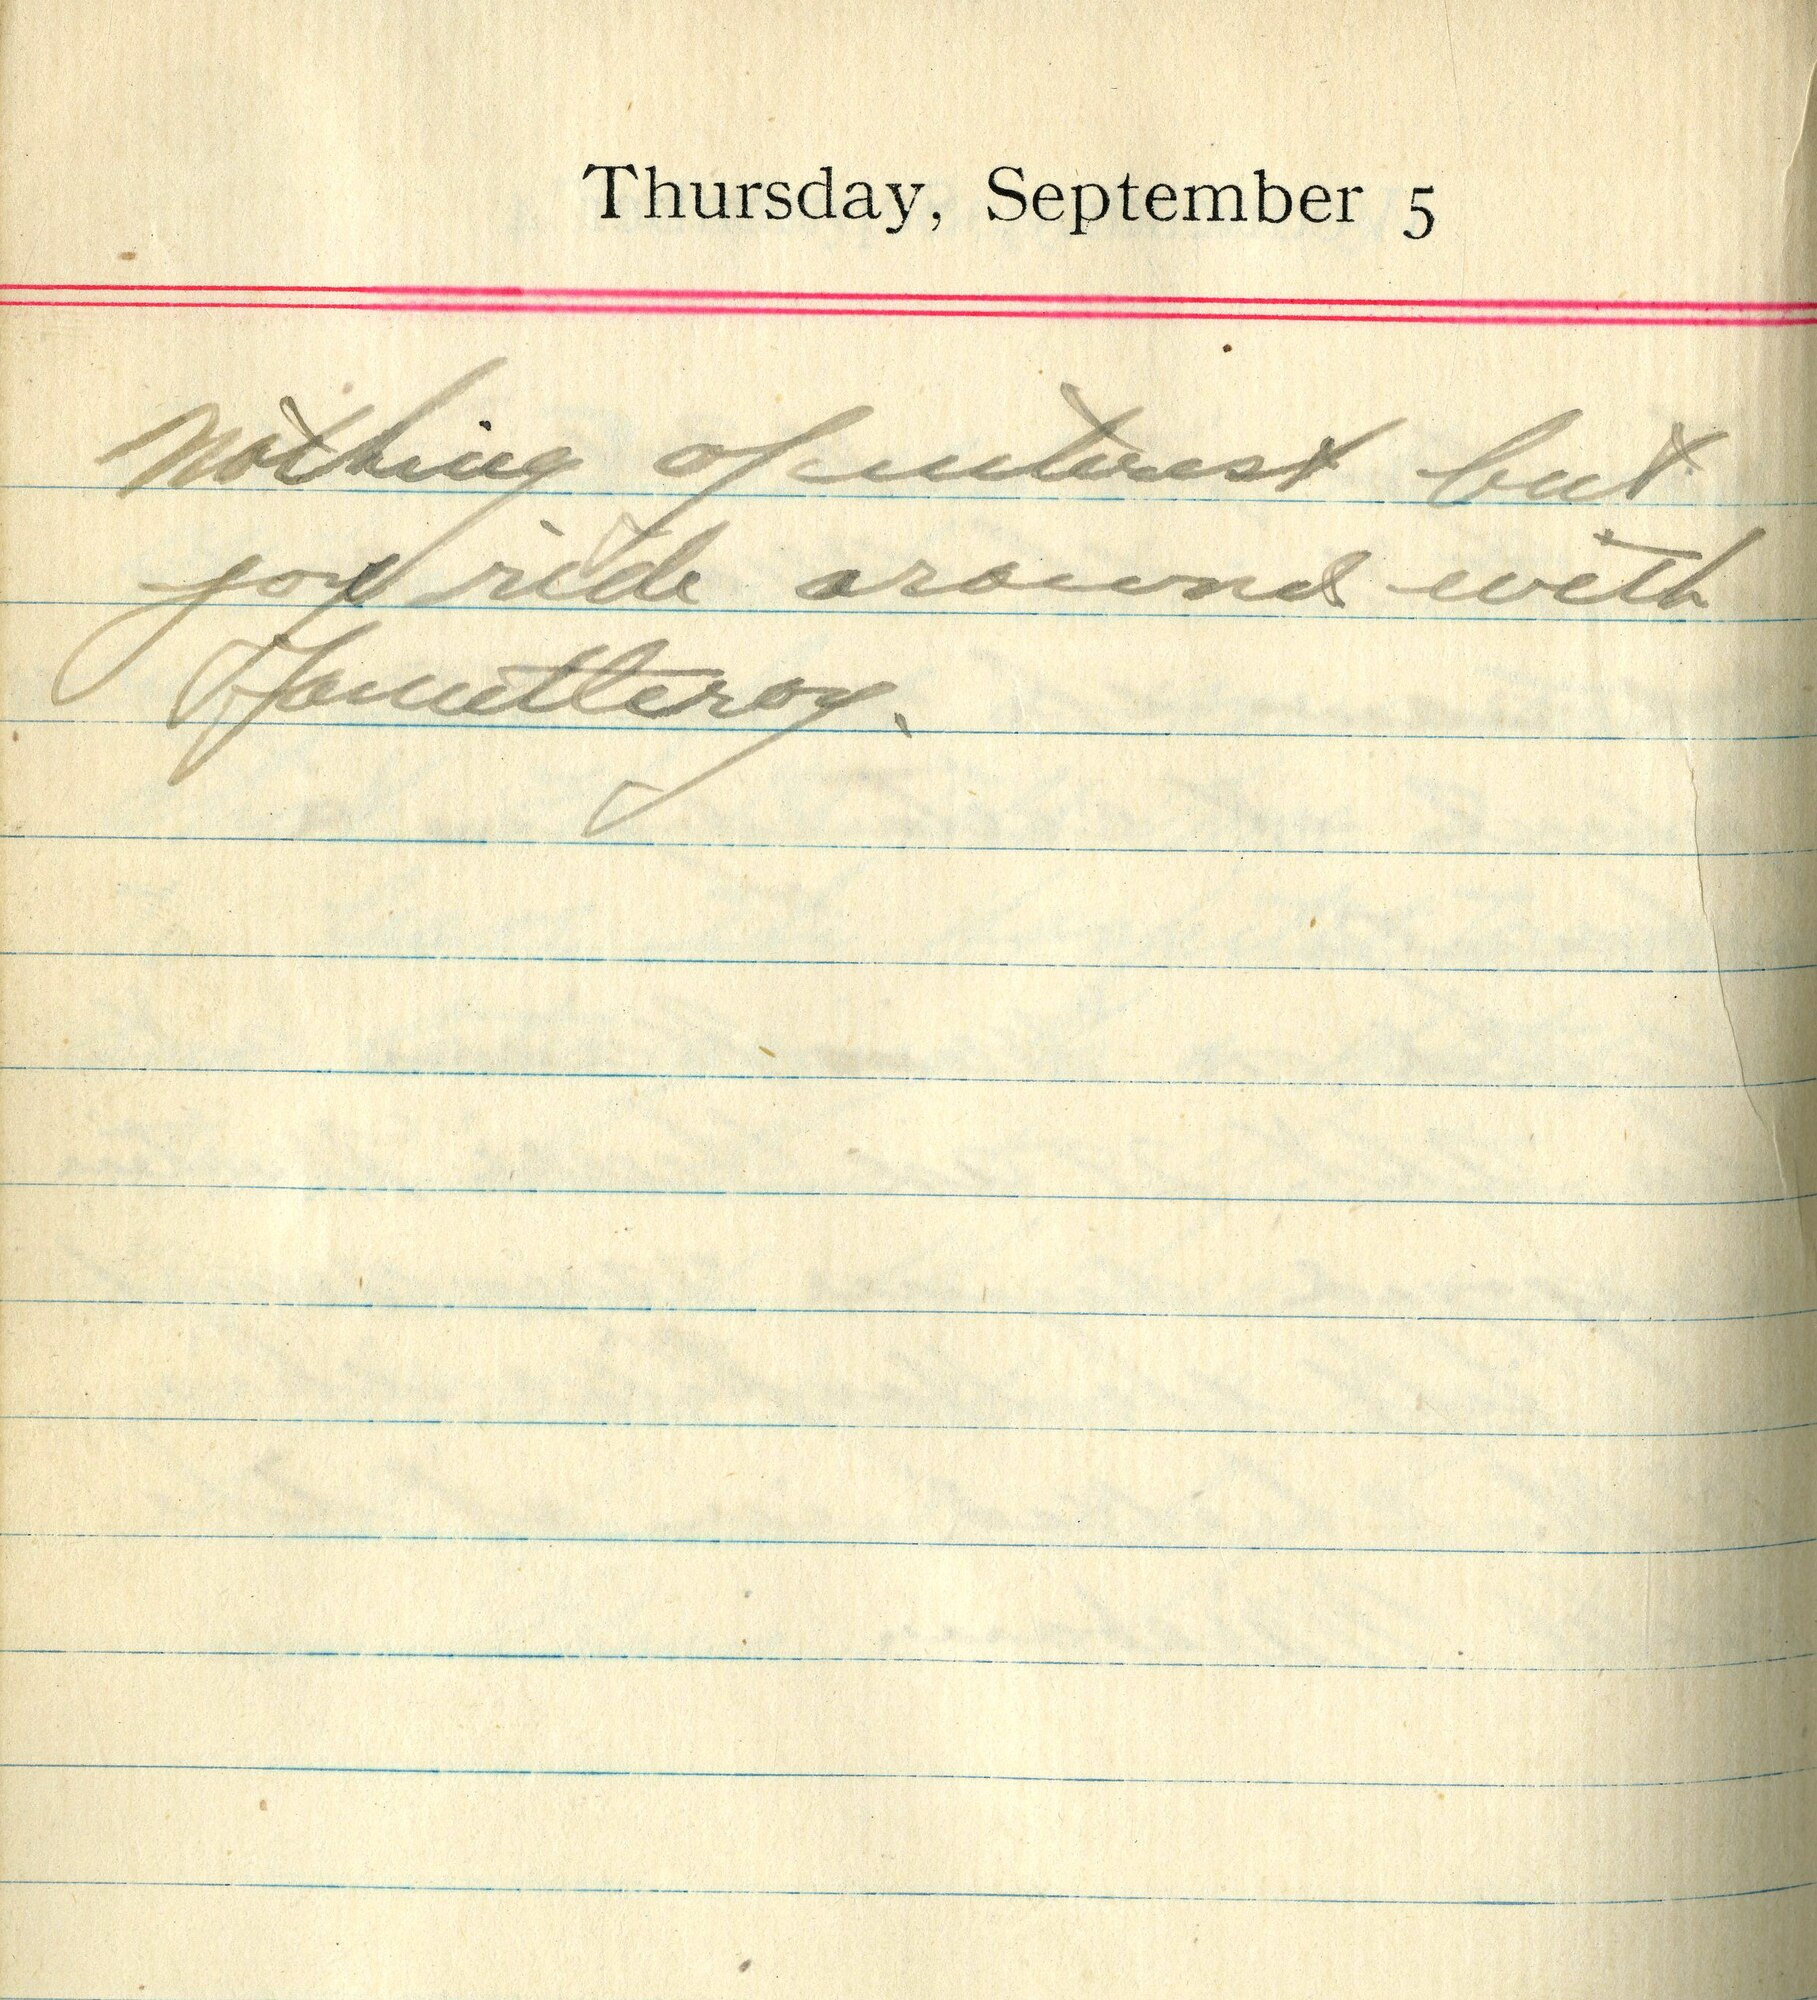 Thursday, September 5
Nothing of interest but
joy ride around with